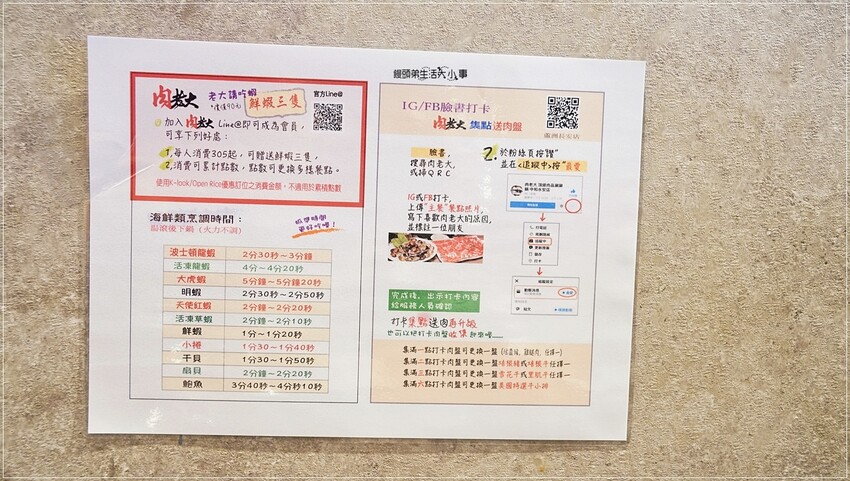 饅頭弟生活大小事
肉老大 老大請吃蝦 鮮蝦三隻 官方Line@
加入肉老大 Line@即可成為會員，
可享下列好處：
1.每人消費305起，可贈送鮮蝦三隻，
2.消費可累計點數，點數可更換多樣餐點。
使用K-look/Open Rice優惠訂位之消費金額，不適用於累積點數
海鮮類烹調時間：
湯滾後下鍋 (火力不調)
抓準時間
更好吃喔！
波士頓龍蝦 2分30秒～3分鐘
活凍龍蝦 4分～4分20秒
大虎蝦 5分鐘～5分鐘20秒
明蝦 2分30秒～2分50秒
天使紅蝦 2分鐘～2分20秒
活凍草蝦 2分鐘～2分10秒
鮮蝦 1分～1分20秒
小捲 1分30秒～1分40秒
干貝 1分30秒～1分50秒
扇貝 2分鐘～2分20秒
鮑魚 3分40秒～4分10秒
IG/FB臉書打卡
肉老大 集點送肉盤
蘆洲長安店
臉書，
搜尋肉老大，
或掃ＱＲＣ
2. 於粉絲頁按"讚"
並在<追蹤中>按"最愛"
IG或FB打卡，
上傳"主餐"餐點照片，
寫下喜歡肉老大的原因，
並標註一位朋友
完成後，出示打卡內容
給服務人員確認
打卡集點送肉再升級
也可以把打卡肉盤收集起來喔
集滿一點打卡肉盤可更換一盤
集滿二點打卡肉盤可更換一盤
集滿三點打卡肉盤可更換一盤
集滿六點打卡肉盤可更換一盤美國特選子小排